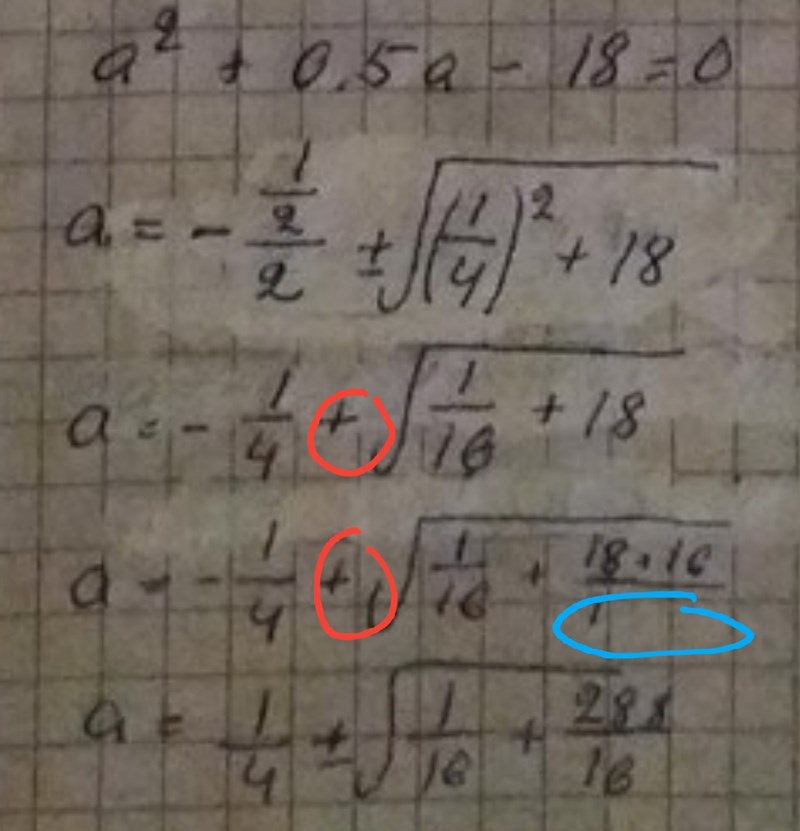 a² + 0.5a - 18 = 0
a = - (1/2)/2 ± √((1/4)² + 18)
a = - 1/4 + √(1/16 + 18)
a = - 1/4 + √(1/16 + (18·16)/1)
a = 1/4 ± √(1/16 + 288/16)